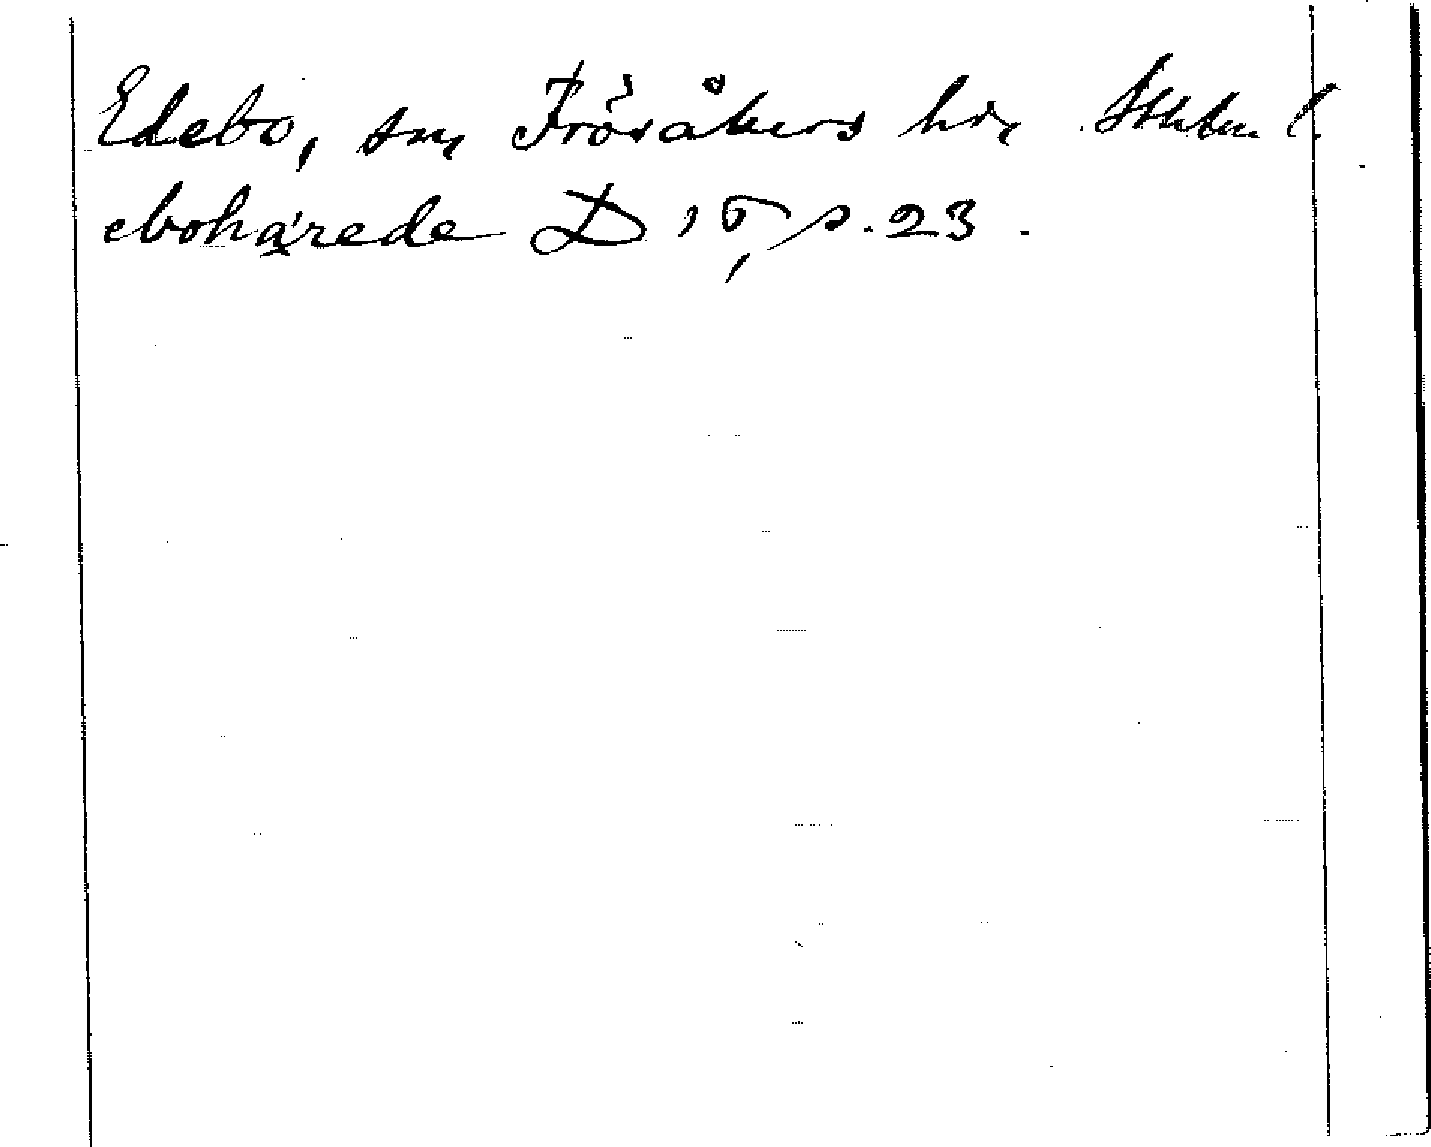 Edebo, sn, Frösåkers hd, Sthlm l.
ebohärede D 15, s. 23.